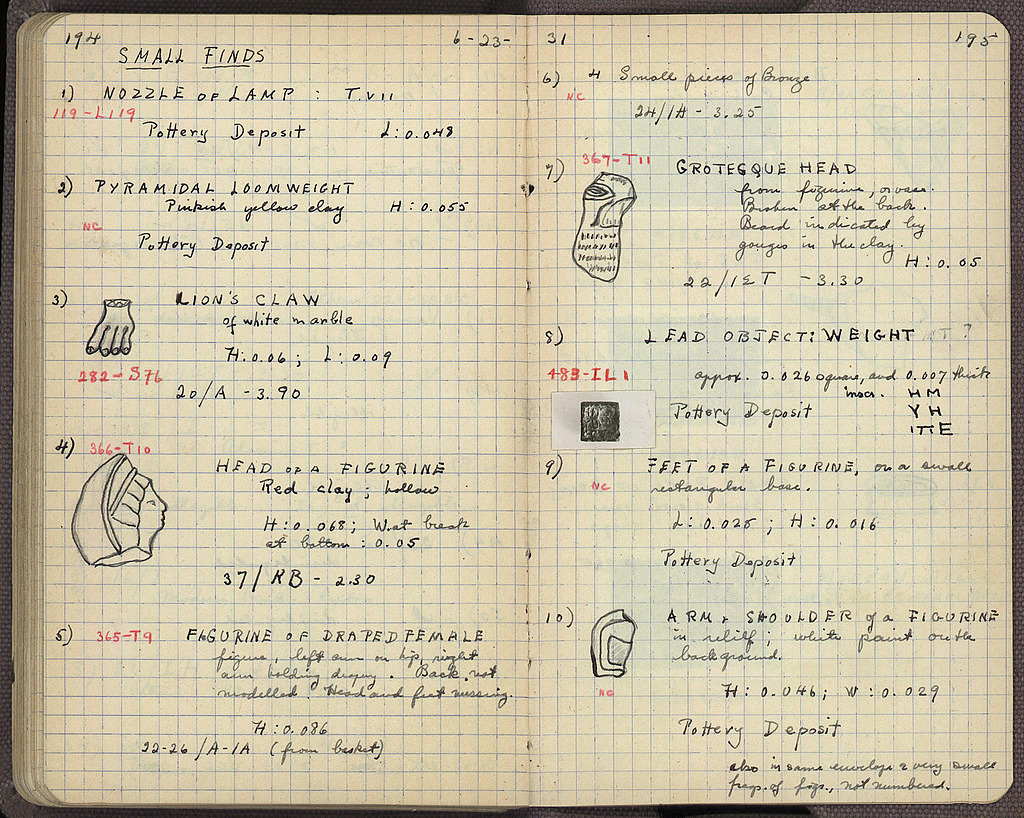 194
6-23-
SMALL FINDS
1) NOZZLE OF LAMP : T.VII
119-L119
Pottery Deposit L:0.048
2) PYRAMIDAL LOOMWEIGHT
Pinkish yellow clay H:0.055
NC
Pottery Deposit
3) LION'S CLAW
of white marble
H:0.06; L:0.09
282-S76
20/A -3.90
4) 366-T10
HEAD OF A FIGURINE
Red clay; hollow
H:0.068; W.at break
at bottom: 0.05
37/KB - 2.30
5) 365-T9 FIGURINE OF DRAPED FEMALE
figure, left arm on hip, right
arm holding drapery. Back not
modelled. Head and feet missing.
H:0.086
22-26/A-IA (from basket)
31
195
6) 4 Small pieces of Bronze
NC
24/IA - 3.25
7) 367-T11
GROTESQUE HEAD
from figurine, or vase.
Broken at the back.
Beard indicated by
gouges in the clay.
H:0.05
22/IΣT -3.30
8) LEAD OBJECT: WEIGHT ?
483-IL1
approx. 0.026 square, and 0.007 thick
inscr. HM
Pottery Deposit YH
ITTE
9) FEET OF A FIGURINE, on a small
NC
rectangular base.
L:0.025; H:0.016
Pottery Deposit
10) ARM & SHOULDER of a FIGURINE
in relief; white paint on the
background.
NC
H:0.046; W:0.029
Pottery Deposit
also in same envelope 2 very small
frags. of figs., not numbered.